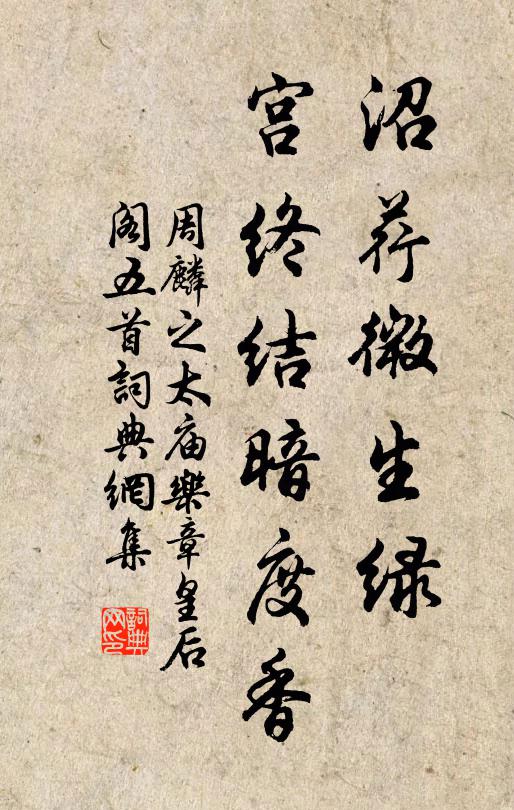 沼荇微生绿
宫终结暗度香
周麟之太庙乐章皇后
阁五首词典网集
詞典网印